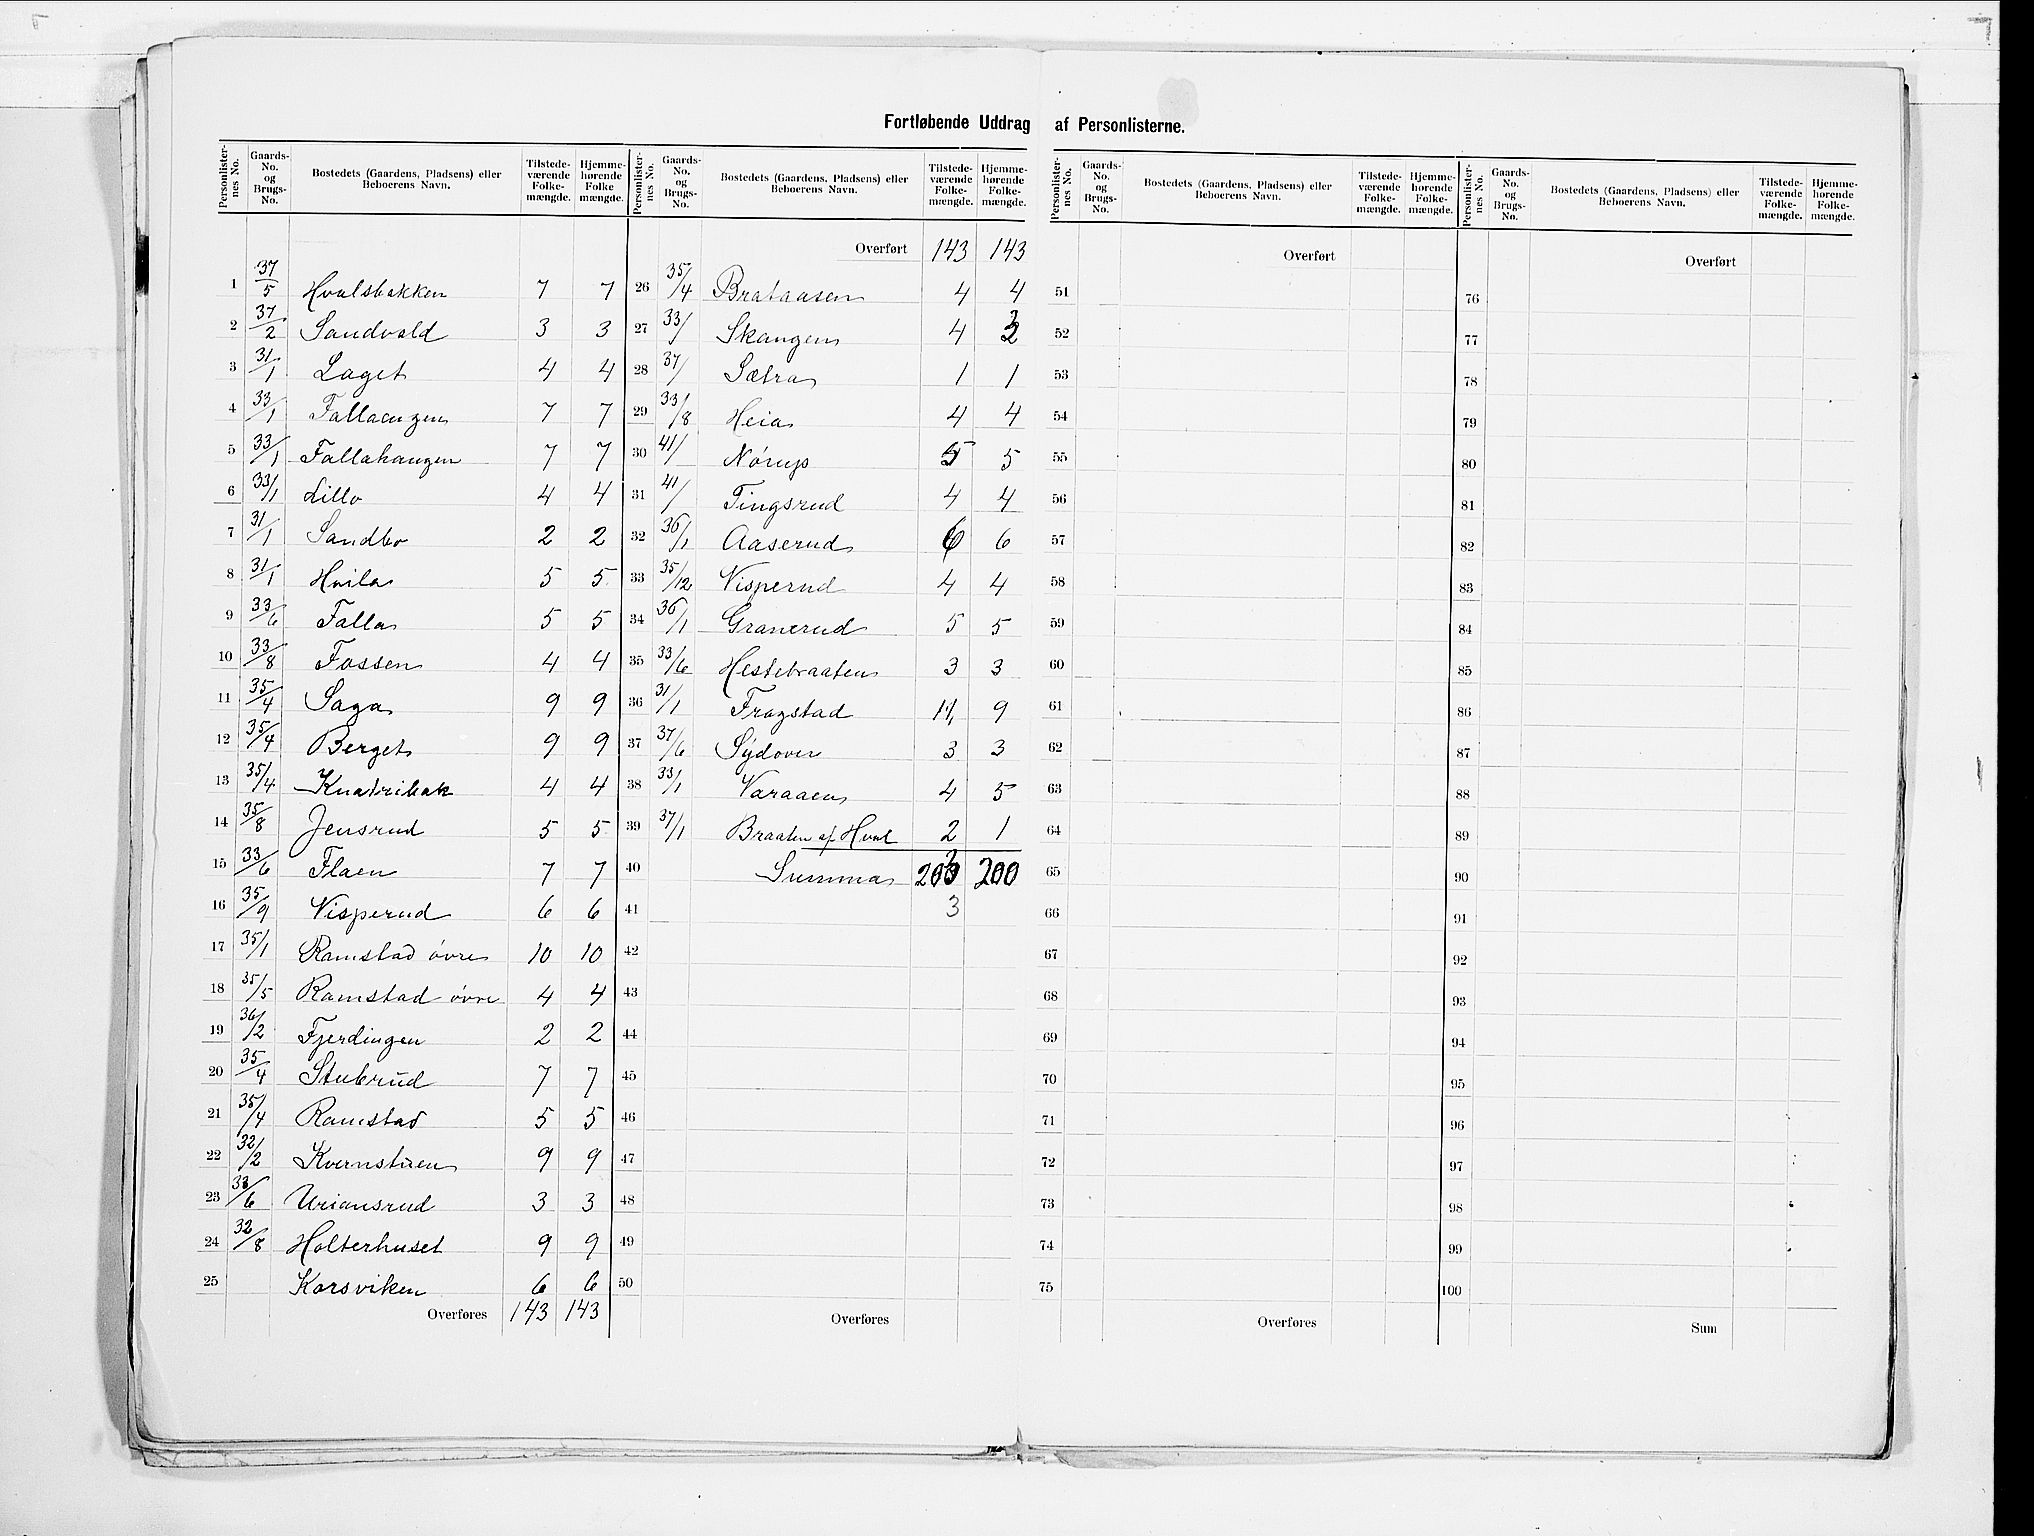 Fortløbende Uddrag af Personlisterne.
Personlisternes No. | Gaards-No. og Brugs-No. | Bostedets (Gaardens, Pladsens) eller Beboerens Navn. | Tilstedeværende Folkemængde. | Hjemmehørende Folkemængde.
1 37/5 Hvalsbakken 7 7
2 37/2 Sandvold 3 3
3 31/1 Laget 4 4
4 33/1 Fallaengen 7 7
5 33/1 Fallahaugen 7 7
6 33/1 Lillo 4 4
7 31/1 Sandbo 2 2
8 31/1 Hvila 5 5
9 33/6 Falla 5 5
10 33/8 Fossen 4 4
11 35/4 Saga 9 9
12 35/4 Berget 9 9
13 35/4 Knatribak 4 4
14 35/8 Jensrud 5 5
15 33/6 Flaen 7 7
16 35/9 Visperud 6 6
17 35/1 Ramstad øvre 10 10
18 35/5 Ramstad øvre 4 4
19 36/2 Fjerdingen 2 2
20 35/4 Stubrud 7 7
21 35/4 Ramstad 5 5
22 32/2 Kvernstuen 9 9
23 33/6 Uriansrud 3 3
24 32/8 Holterhuset 9 9
25 Korsviken 6 6
Overføres 143 143
Personlisternes No. | Gaards-No. og Brugs-No. | Bostedets (Gaardens, Pladsens) eller Beboerens Navn. | Tilstedeværende Folkemængde. | Hjemmehørende Folkemængde.
Overført 143 143
26 35/4 Brataasen 4 4
27 33/ Skaugen 4 3
28 37/ Sætra 1 1
29 33/8 Heia 4 4
30 41/ Nørup 5 5
31 41/ Tingsrud 4 4
32 36/1 Aaserud 6 6
33 35/12 Visperud 4 4
34 36/1 Granerud 5 5
35 33/6 Hestebraaten 3 3
36 31/1 Frogstad 11 9
37 37/6 Sydover 3 3
38 33/1 Varaaen 4 5
39 37/1 Braaten af Hval 2 1
40 Summa 203 200
41 3
42
43
44
45
46
47
48
49
50
Overføres
Personlisternes No. | Gaards-No. og Brugs-No. | Bostedets (Gaardens, Pladsens) eller Beboerens Navn. | Tilstedeværende Folkemængde. | Hjemmehørende Folkemængde.
Overført
51
52
53
54
55
56
57
58
59
60
61
62
63
64
65
66
67
68
69
70
71
72
73
74
75
Overføres
Personlisternes No. | Gaards-No. og Brugs-No. | Bostedets (Gaardens, Pladsens) eller Beboerens Navn. | Tilstedeværende Folkemængde. | Hjemmehørende Folkemængde.
Overført
76
77
78
79
80
81
82
83
84
85
86
87
88
89
90
91
92
93
94
95
96
97
98
99
100
Sum